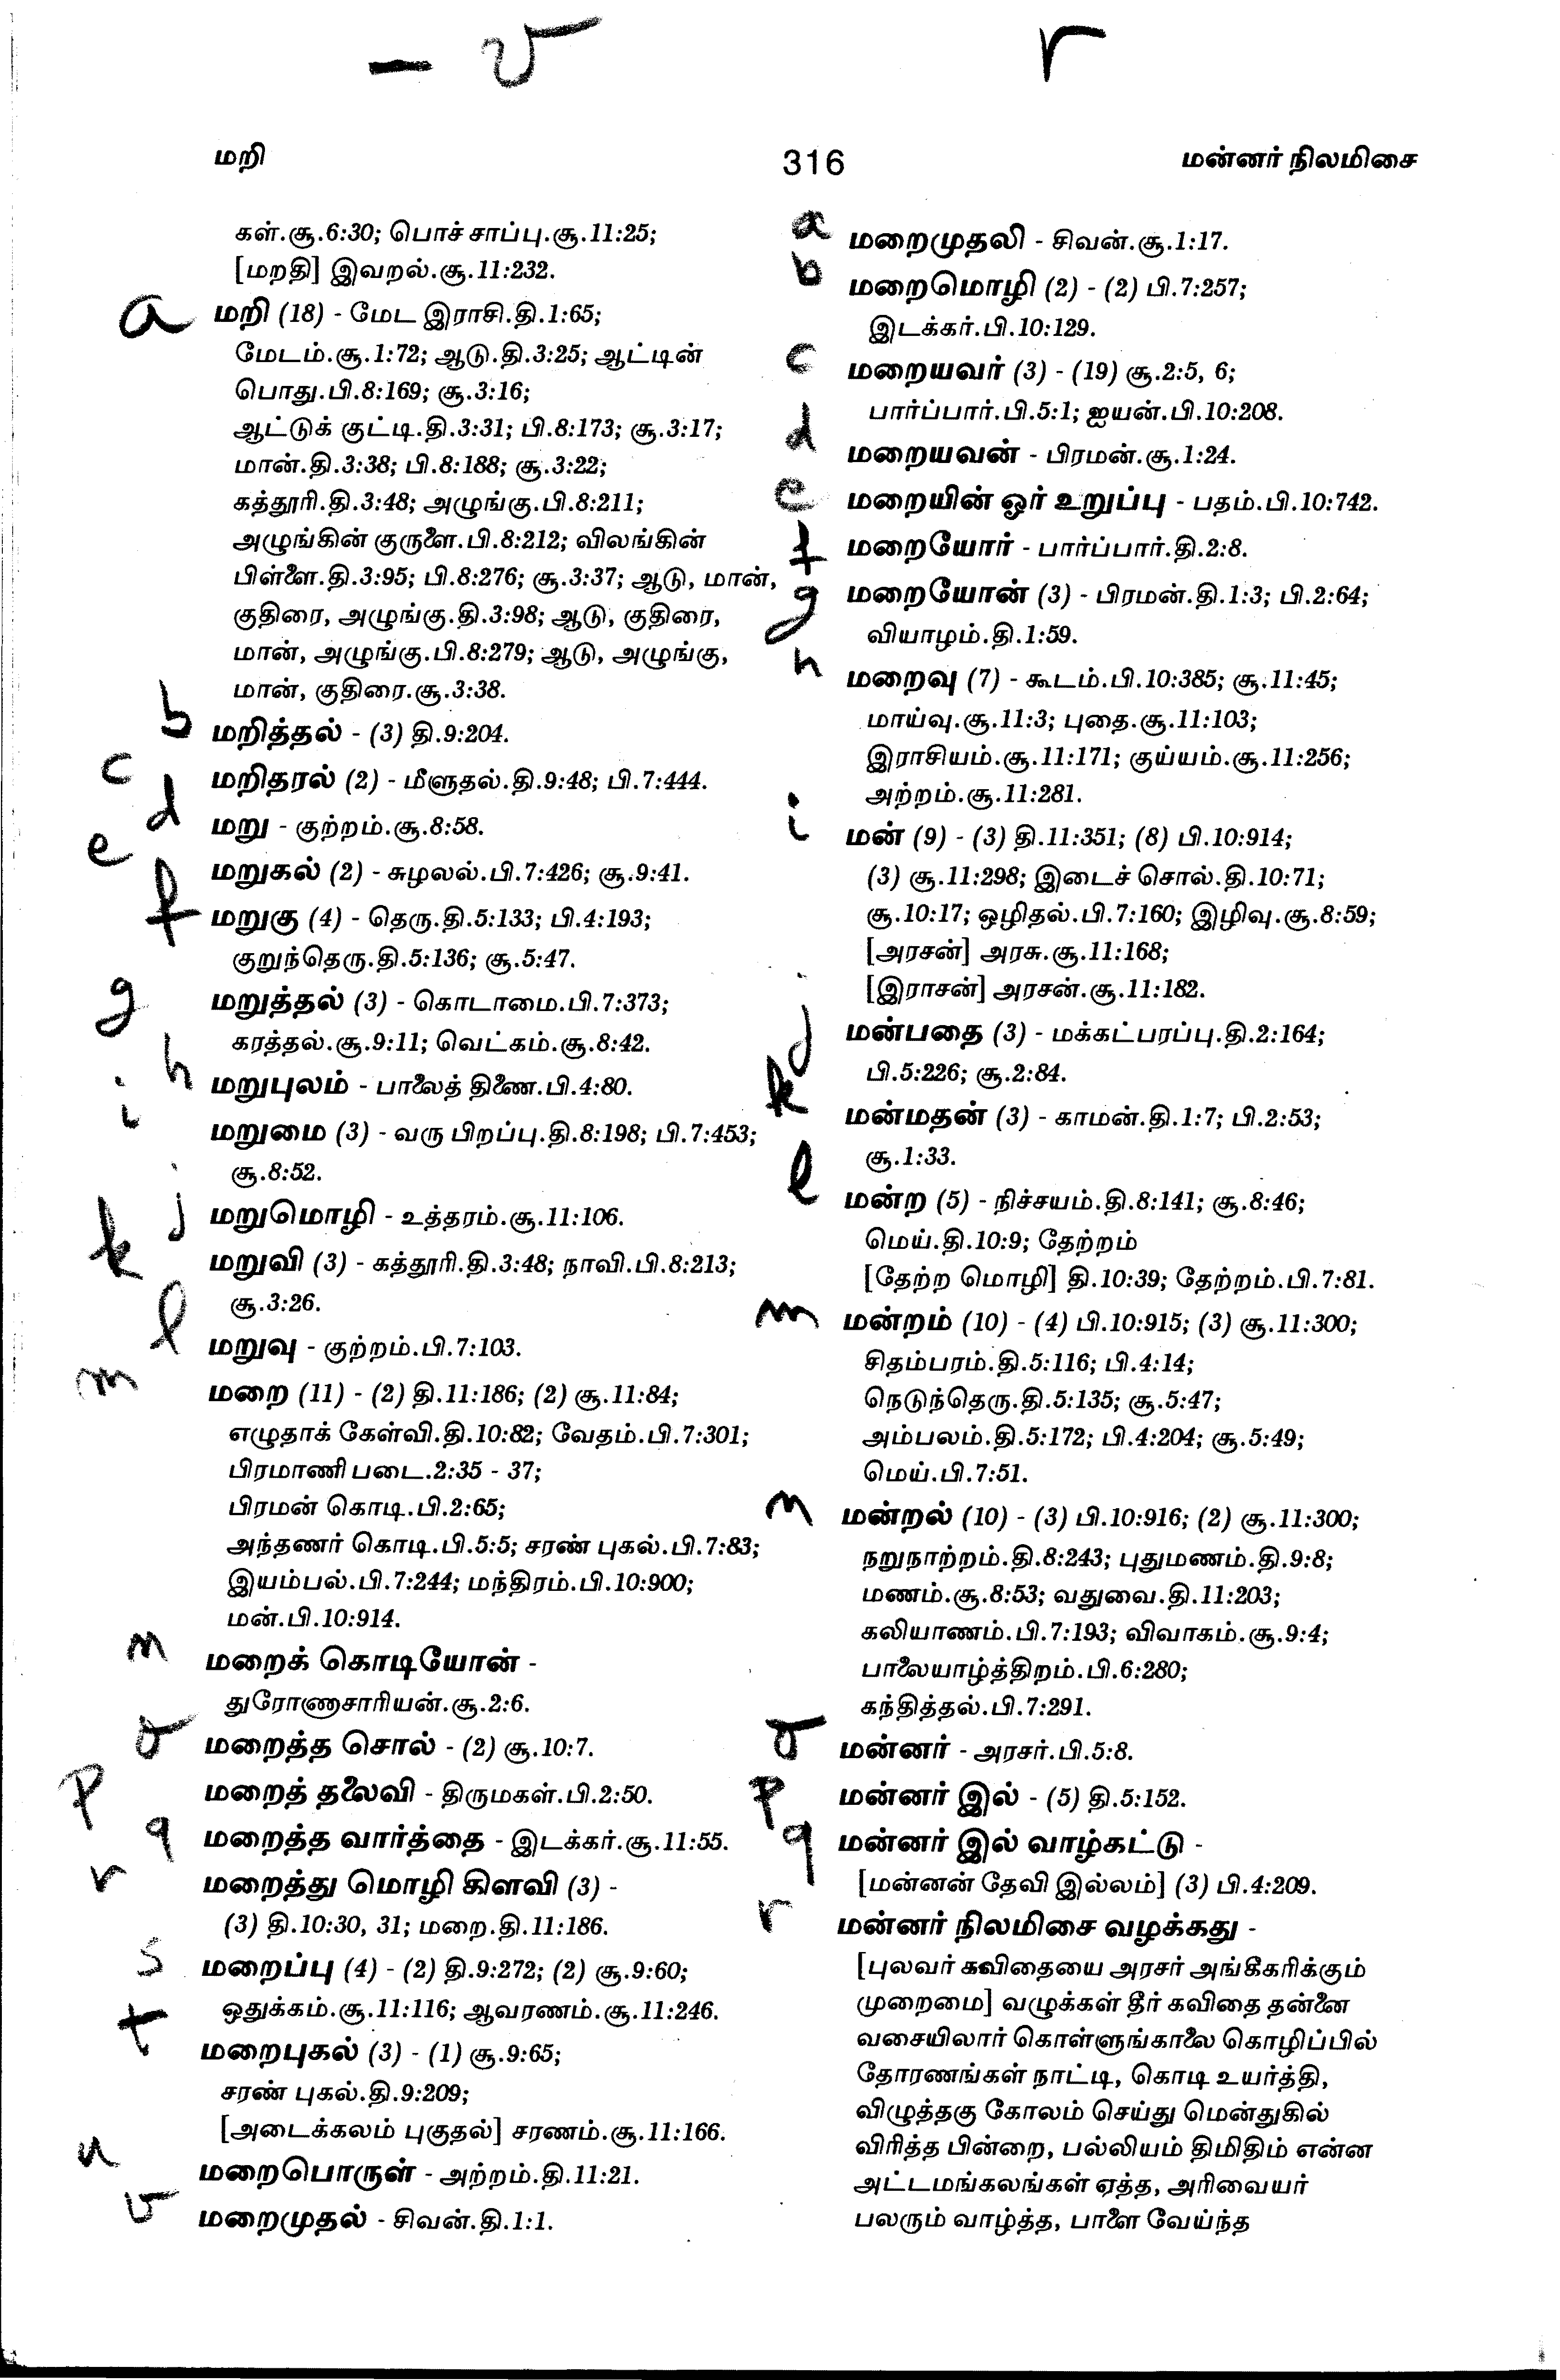 - v r
மறி 316 மன்னர் நிலமிசை
கள்.சூ.6:30; பொச்சாப்பு.சூ.11:25;
[மறதி] இவறல்.சூ.11:232.
a மறி (18) - மேட இராசி.தி.1:65;
மேடம்.சூ.1:72; ஆடு.தி.3:25; ஆட்டின்
பொது.பி.8:169; சூ.3:16;
ஆட்டுக் குட்டி.தி.3:31; பி.8:173; சூ.3:17;
மான்.தி.3:38; பி.8:188; சூ.3:22;
கத்தூரி.தி.3:48; அழுங்கு.பி.8:211;
அழுங்கின் குருளை.பி.8:212; விலங்கின்
பிள்ளை.தி.3:95; பி.8:276; சூ.3:37; ஆடு, மான்,
குதிரை, அழுங்கு.தி.3:98; ஆடு, குதிரை,
மான், அழுங்கு.பி.8:279; ஆடு, அழுங்கு,
மான், குதிரை.சூ.3:38.
b மறித்தல் - (3) தி.9:204.
c மறிதரல் (2) - மீளுதல்.தி.9:48; பி.7:444.
d மறு - குற்றம்.சூ.8:58.
e மறுகல் (2) - சுழலல்.பி.7:426; சூ.9:41.
f மறுகு (4) - தெரு.தி.5:133; பி.4:193;
குறுந்தெரு.தி.5:136; சூ.5:47.
g மறுத்தல் (3) - கொடாமை.பி.7:373;
கரத்தல்.சூ.9:11; வெட்கம்.சூ.8:42.
h மறுபுலம் - பாலைத் திணை.பி.4:80.
i மறுமை (3) - வரு பிறப்பு.தி.8:198; பி.7:453;
சூ.8:52.
j மறுமொழி - உத்தரம்.சூ.11:106.
k மறுவி (3) - கத்தூரி.தி.3:48; நாவி.பி.8:213;
சூ.3:26.
l மறுவு - குற்றம்.பி.7:103.
m மறை (11) - (2) தி.11:186; (2) சூ.11:84;
எழுதாக் கேள்வி.தி.10:82; வேதம்.பி.7:301;
பிரமாணி படை.2:35 - 37;
பிரமன் கொடி.பி.2:65;
அந்தணர் கொடி.பி.5:5; சரண் புகல்.பி.7:83;
இயம்பல்.பி.7:244; மந்திரம்.பி.10:900;
மன்.பி.10:914.
n மறைக் கொடியோன் -
துரோணாசாரியன்.சூ.2:6.
o மறைத்த சொல் - (2) சூ.10:7.
p மறைத் தலைவி - திருமகள்.பி.2:50.
q மறைத்த வார்த்தை - இடக்கர்.சூ.11:55.
r மறைத்து மொழி கிளவி (3) -
(3) தி.10:30, 31; மறை.தி.11:186.
s மறைப்பு (4) - (2) தி.9:272; (2) சூ.9:60;
ஒதுக்கம்.சூ.11:116; ஆவரணம்.சூ.11:246.
t மறைபுகல் (3) - (1) சூ.9:65;
சரண் புகல்.தி.9:209;
[அடைக்கலம் புகுதல்] சரணம்.சூ.11:166.
u மறைபொருள் - அற்றம்.தி.11:21.
v மறைமுதல் - சிவன்.தி.1:1.
a மறைமுதலி - சிவன்.சூ.1:17.
b மறைமொழி (2) - (2) பி.7:257;
இடக்கர்.பி.10:129.
c மறையவர் (3) - (19) சூ.2:5, 6;
பார்ப்பார்.பி.5:1; ஐயன்.பி.10:208.
d மறையவன் - பிரமன்.சூ.1:24.
e மறையின் ஓர் உறுப்பு - பதம்.பி.10:742.
f மறையோர் - பார்ப்பார்.தி.2:8.
g மறையோன் (3) - பிரமன்.தி.1:3; பி.2:64;
வியாழம்.தி.1:59.
h மறைவு (7) - கூடம்.பி.10:385; சூ.11:45;
மாய்வு.சூ.11:3; புதை.சூ.11:103;
இராசியம்.சூ.11:171; குய்யம்.சூ.11:256;
அற்றம்.சூ.11:281.
i மன் (9) - (3) தி.11:351; (8) பி.10:914;
(3) சூ.11:298; இடைச் சொல்.தி.10:71;
சூ.10:17; ஒழிதல்.பி.7:160; இழிவு.சூ.8:59;
[அரசன்] அரசு.சூ.11:168;
[இராசன்] அரசன்.சூ.11:182.
j மன்பதை (3) - மக்கட்பரப்பு.தி.2:164;
பி.5:226; சூ.2:84.
k மன்மதன் (3) - காமன்.தி.1:7; பி.2:53;
சூ.1:33.
l மன்ற (5) - நிச்சயம்.தி.8:141; சூ.8:46;
மெய்.தி.10:9; தேற்றம்
[தேற்ற மொழி] தி.10:39; தேற்றம்.பி.7:81.
m மன்றம் (10) - (4) பி.10:915; (3) சூ.11:300;
சிதம்பரம்.தி.5:116; பி.4:14;
நெடுந்தெரு.தி.5:135; சூ.5:47;
அம்பலம்.தி.5:172; பி.4:204; சூ.5:49;
மெய்.பி.7:51.
n மன்றல் (10) - (3) பி.10:916; (2) சூ.11:300;
நறுநாற்றம்.தி.8:243; புதுமணம்.தி.9:8;
மணம்.சூ.8:53; வதுவை.தி.11:203;
கலியாணம்.பி.7:193; விவாகம்.சூ.9:4;
பாலையாழ்த்திறம்.பி.6:280;
கந்தித்தல்.பி.7:291.
o மன்னர் - அரசர்.பி.5:8.
p மன்னர் இல் - (5) தி.5:152.
q மன்னர் இல் வாழ்கட்டு -
[மன்னன் தேவி இல்லம்] (3) பி.4:209.
r மன்னர் நிலமிசை வழக்கது -
[புலவர் கவிதையை அரசர் அங்கீகரிக்கும்
முறைமை] வழுக்கள் தீர் கவிதை தன்னை
வசையிலார் கொள்ளுங்காலை கொழிப்பில்
தோரணங்கள் நாட்டி, கொடி உயர்த்தி,
விழுத்தகு கோலம் செய்து மென்துகில்
விரித்த பின்றை, பல்லியம் திமிதிம் என்ன
அட்டமங்கலங்கள் ஏத்த, அரிவையர்
பலரும் வாழ்த்த, பாளை வேய்ந்த